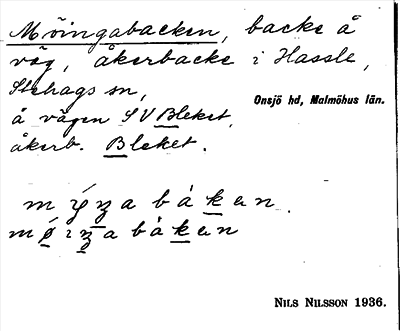 Möingabacken, backe å
väg, åkerbacke i Hassle,
Stehags sn,
Onsjö hd, Malmöhus län.
å vägen SV Bleket,
åkerb. Bleket.
NILS NILSSON 1936.